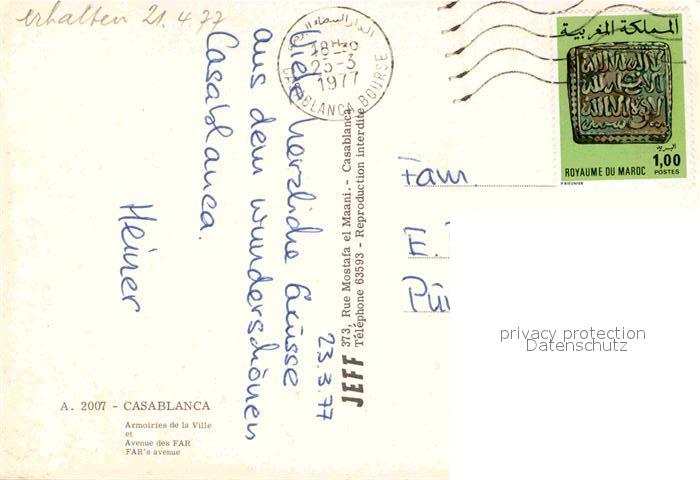 erhalten 21.4.77
الدار البيضاء
18H30
23-3
1977
CASABLANCA BOURSE
المملكة المغربية
البريد
1,00
ROYAUME DU MAROC POSTES
23.3.77
Viele herzliche Grüsse
aus dem wunderschönen
Casablanca.
Heiner
Fam.
JEFF 373, Rue Mostafa el Maani. - Casablanca
Téléphone 63593 - Reproduction interdite
privacy protection
Datenschutz
A. 2007 - CASABLANCA
Armoiries de la Ville
et
Avenue des FAR
FAR's avenue